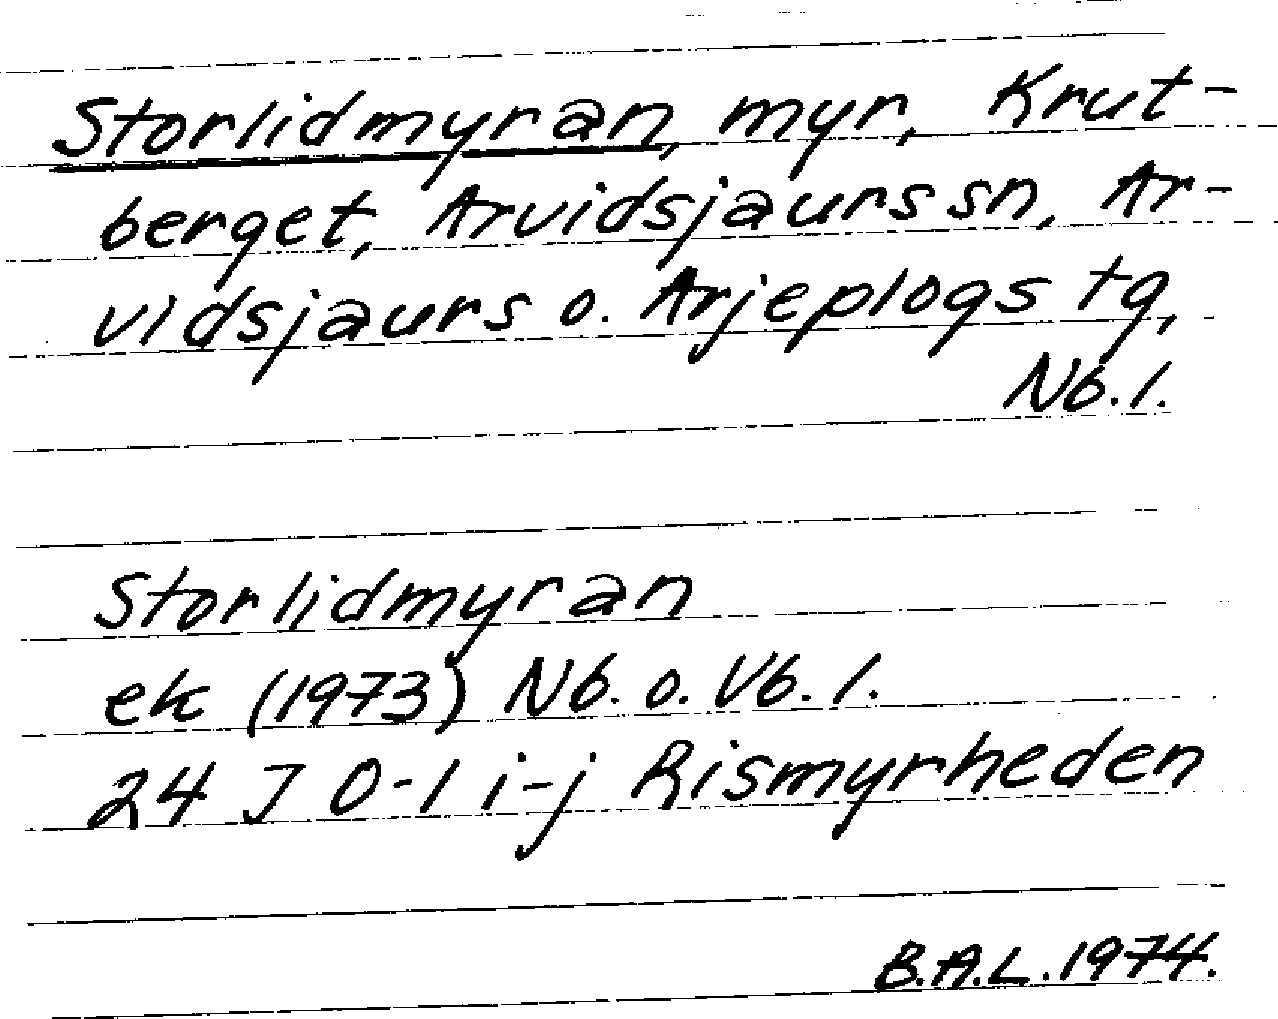 Storlidmyran, myr, Krut-
berget, Arvidsjaurs sn, Ar-
vidsjaurs o. Arjeplogs tg,
Nb.l.
Storlidmyran
ek (1973) Nb. o. Vb. l.
24 J 0-1 i-j Rismyrheden
B.A.L. 1974.